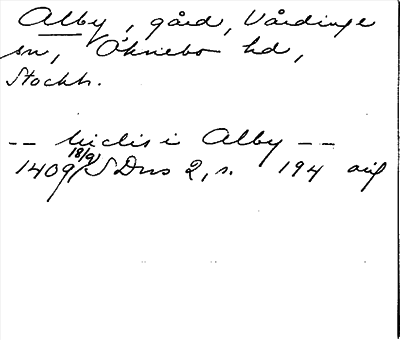 Alby, gård, Vårdinge
sn, Öknebo hd,
Stockh.
-- Niclis i Alby --
18/9
1409 SDns 2, s. 194 avs